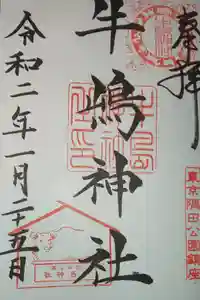 奉拝
牛嶋神社
令和二年一月二十五日
東京隅田公園鎮座